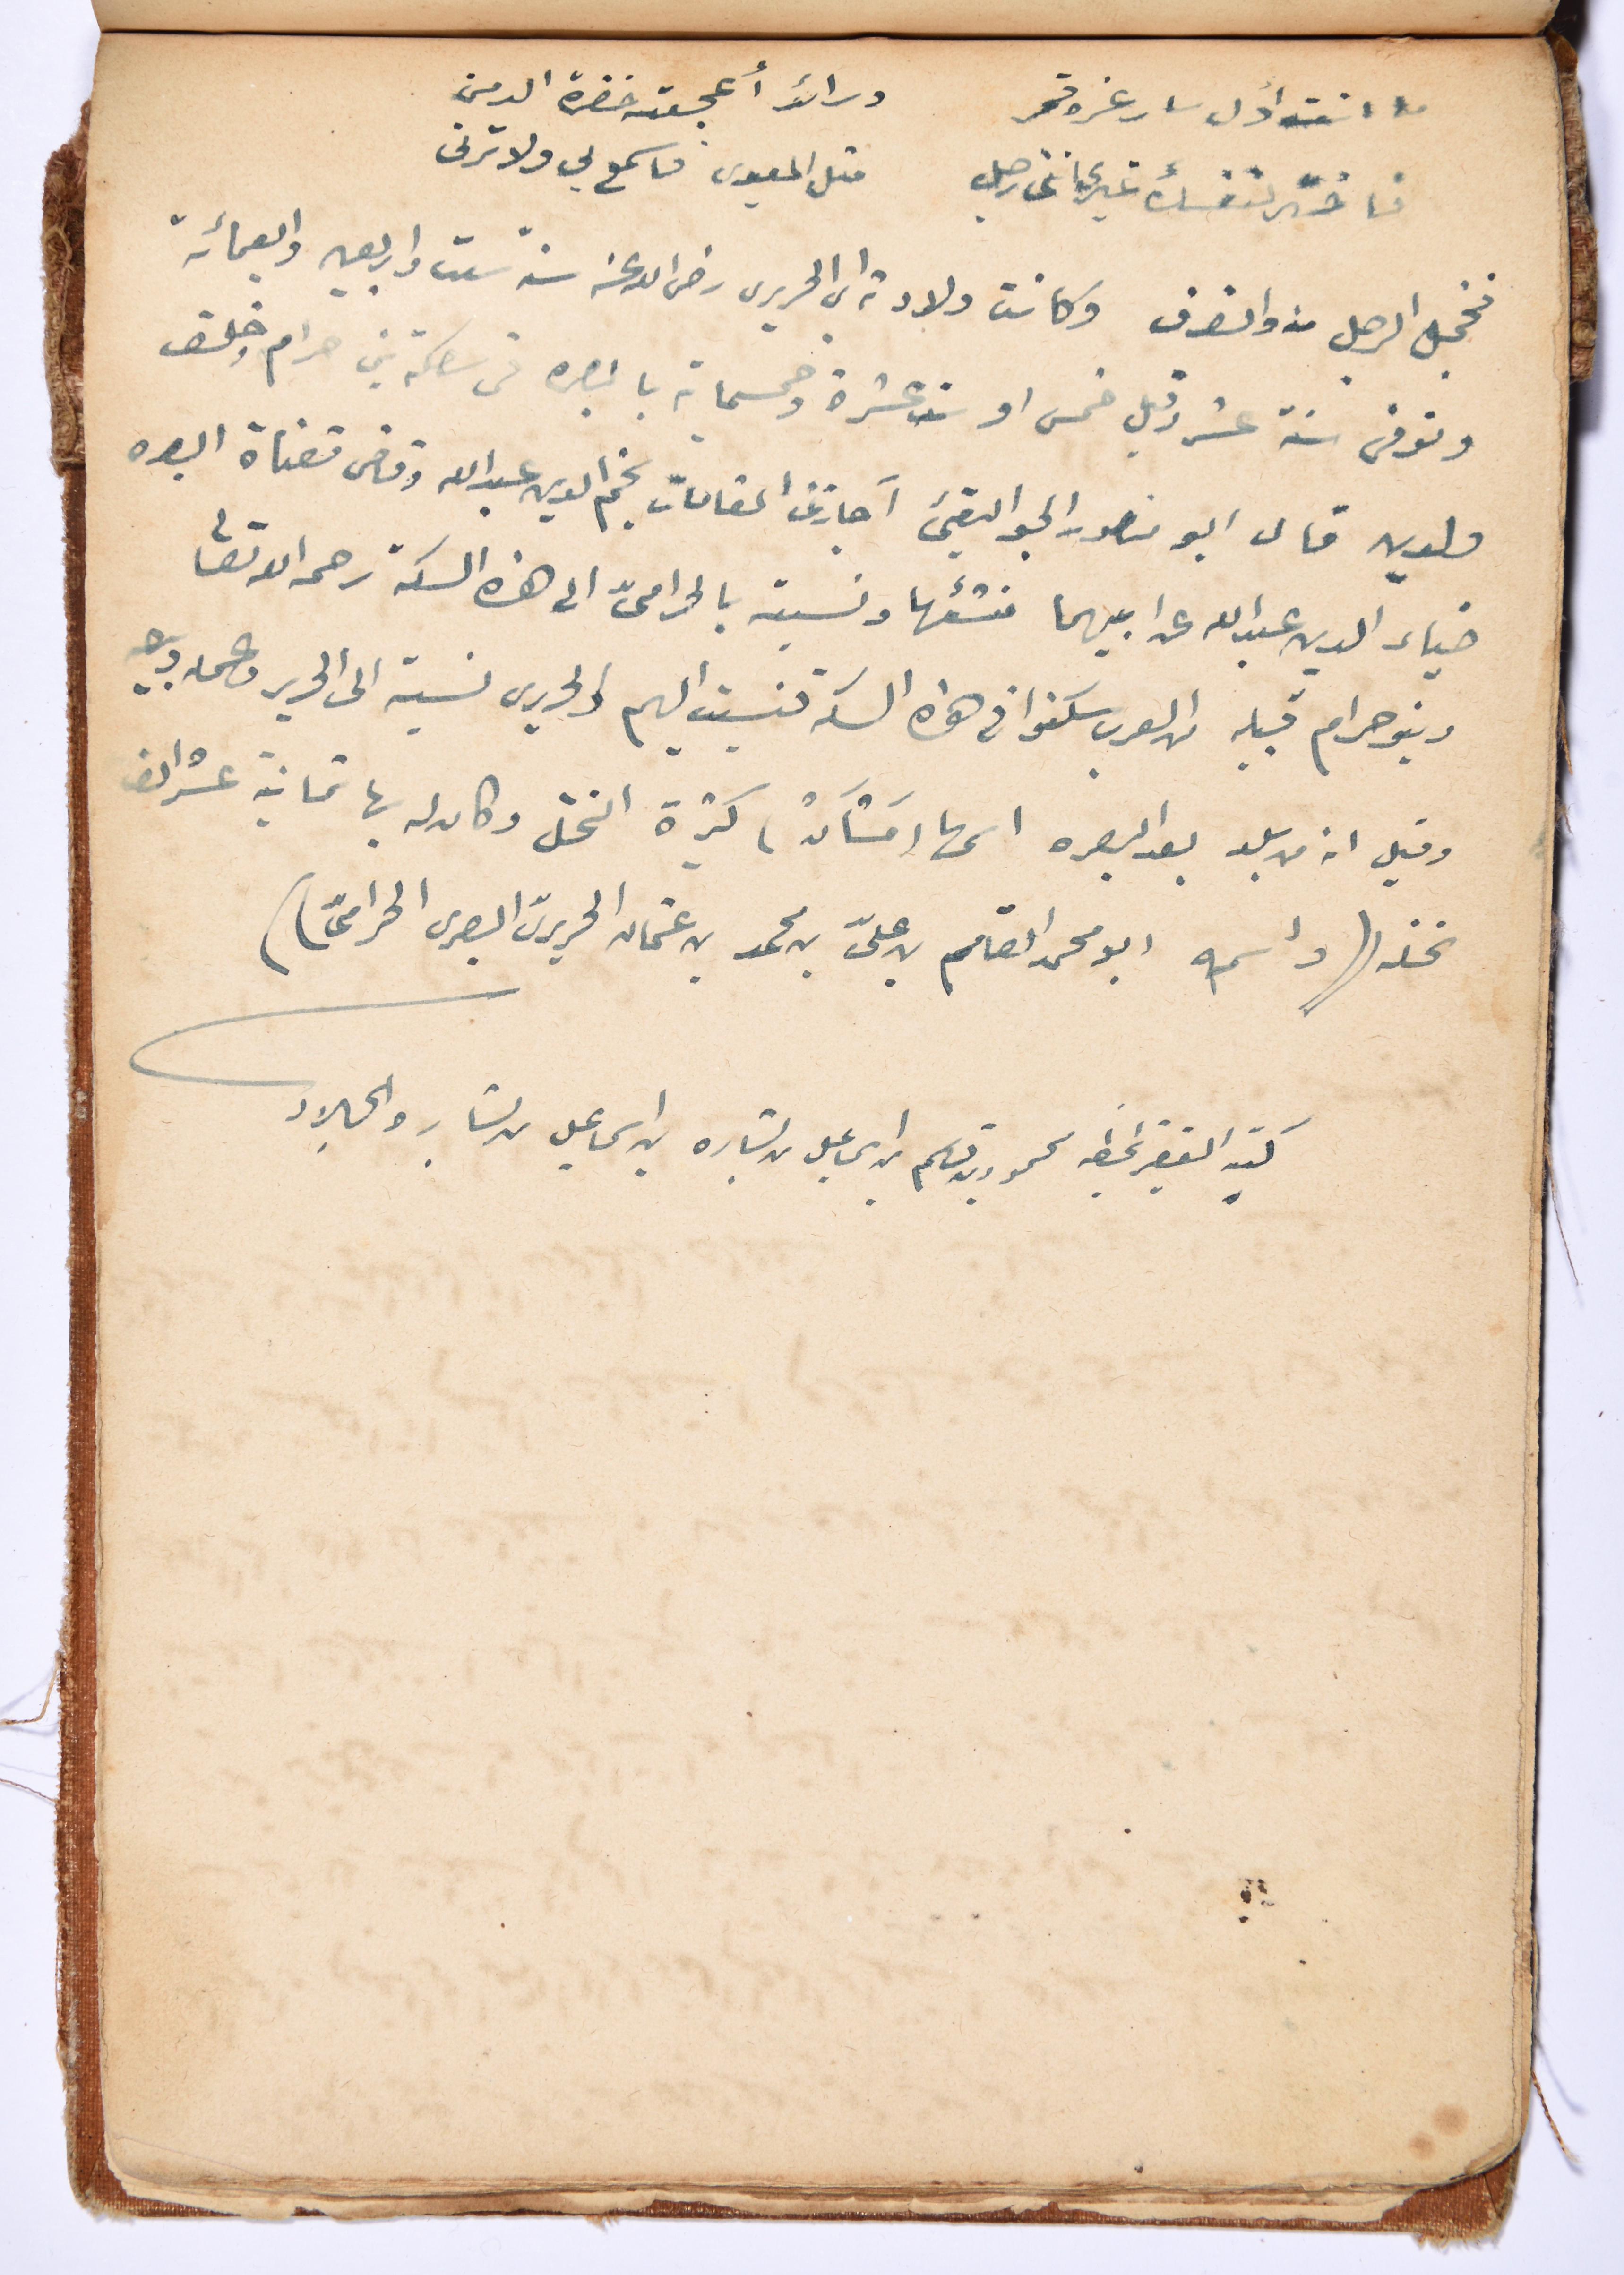 ما انت اول سار غره قمر ورائد أعجبته خضرة الدمن
فاختر لنفسك غيري اننى رجل مثل المعيدى فاسمع بي ولا ترنى
فخجل الرجل منه وانصرف وكانت ولادته اى الحريرى رضى الله عنه سنة ست واربعين واربعمائة
وتوفى سنة عشر وقيل خمس او ست عشرة وخمسماية بالبصره فى سكة بنى حرام وخلف
ولدين قال ابو منصور الجواليقئ اجازنى المقامات نجم الدين عبدالله وقاضى قضاة البصره
ضياء الدين عبيدالله عن ابيهما منشئها ونسبته بالحرامىّ الى هذه السكة رحمه الله تعالى
وبنو حرام قبيله من العرب سكنوا فى هذه السكة فنسبت اليهم والحريرى نسبة الى الحرير وعمله وبيعه
وقيل انه من بلد بعد البصره اسمها (مَشَانْ) كثيرة النخل وكان له بها ثمانية عشر الف
نخله ((واسمه ابو محمد القاسم بن علىّ بن محمد بن عثمان الحريرىّ البصرى الحرامىّ))
كتبه الفقير بخطه محمود بن قاسم بن اسماعيل بن بشاره بن اسماعيل بن بشار